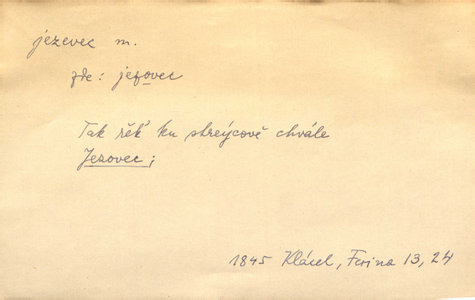 jezevec m.
zde: jezovec
Tak řěk' ku strejcově chvále
Jezovec;
1845 Klácel, Ferina 13, 24